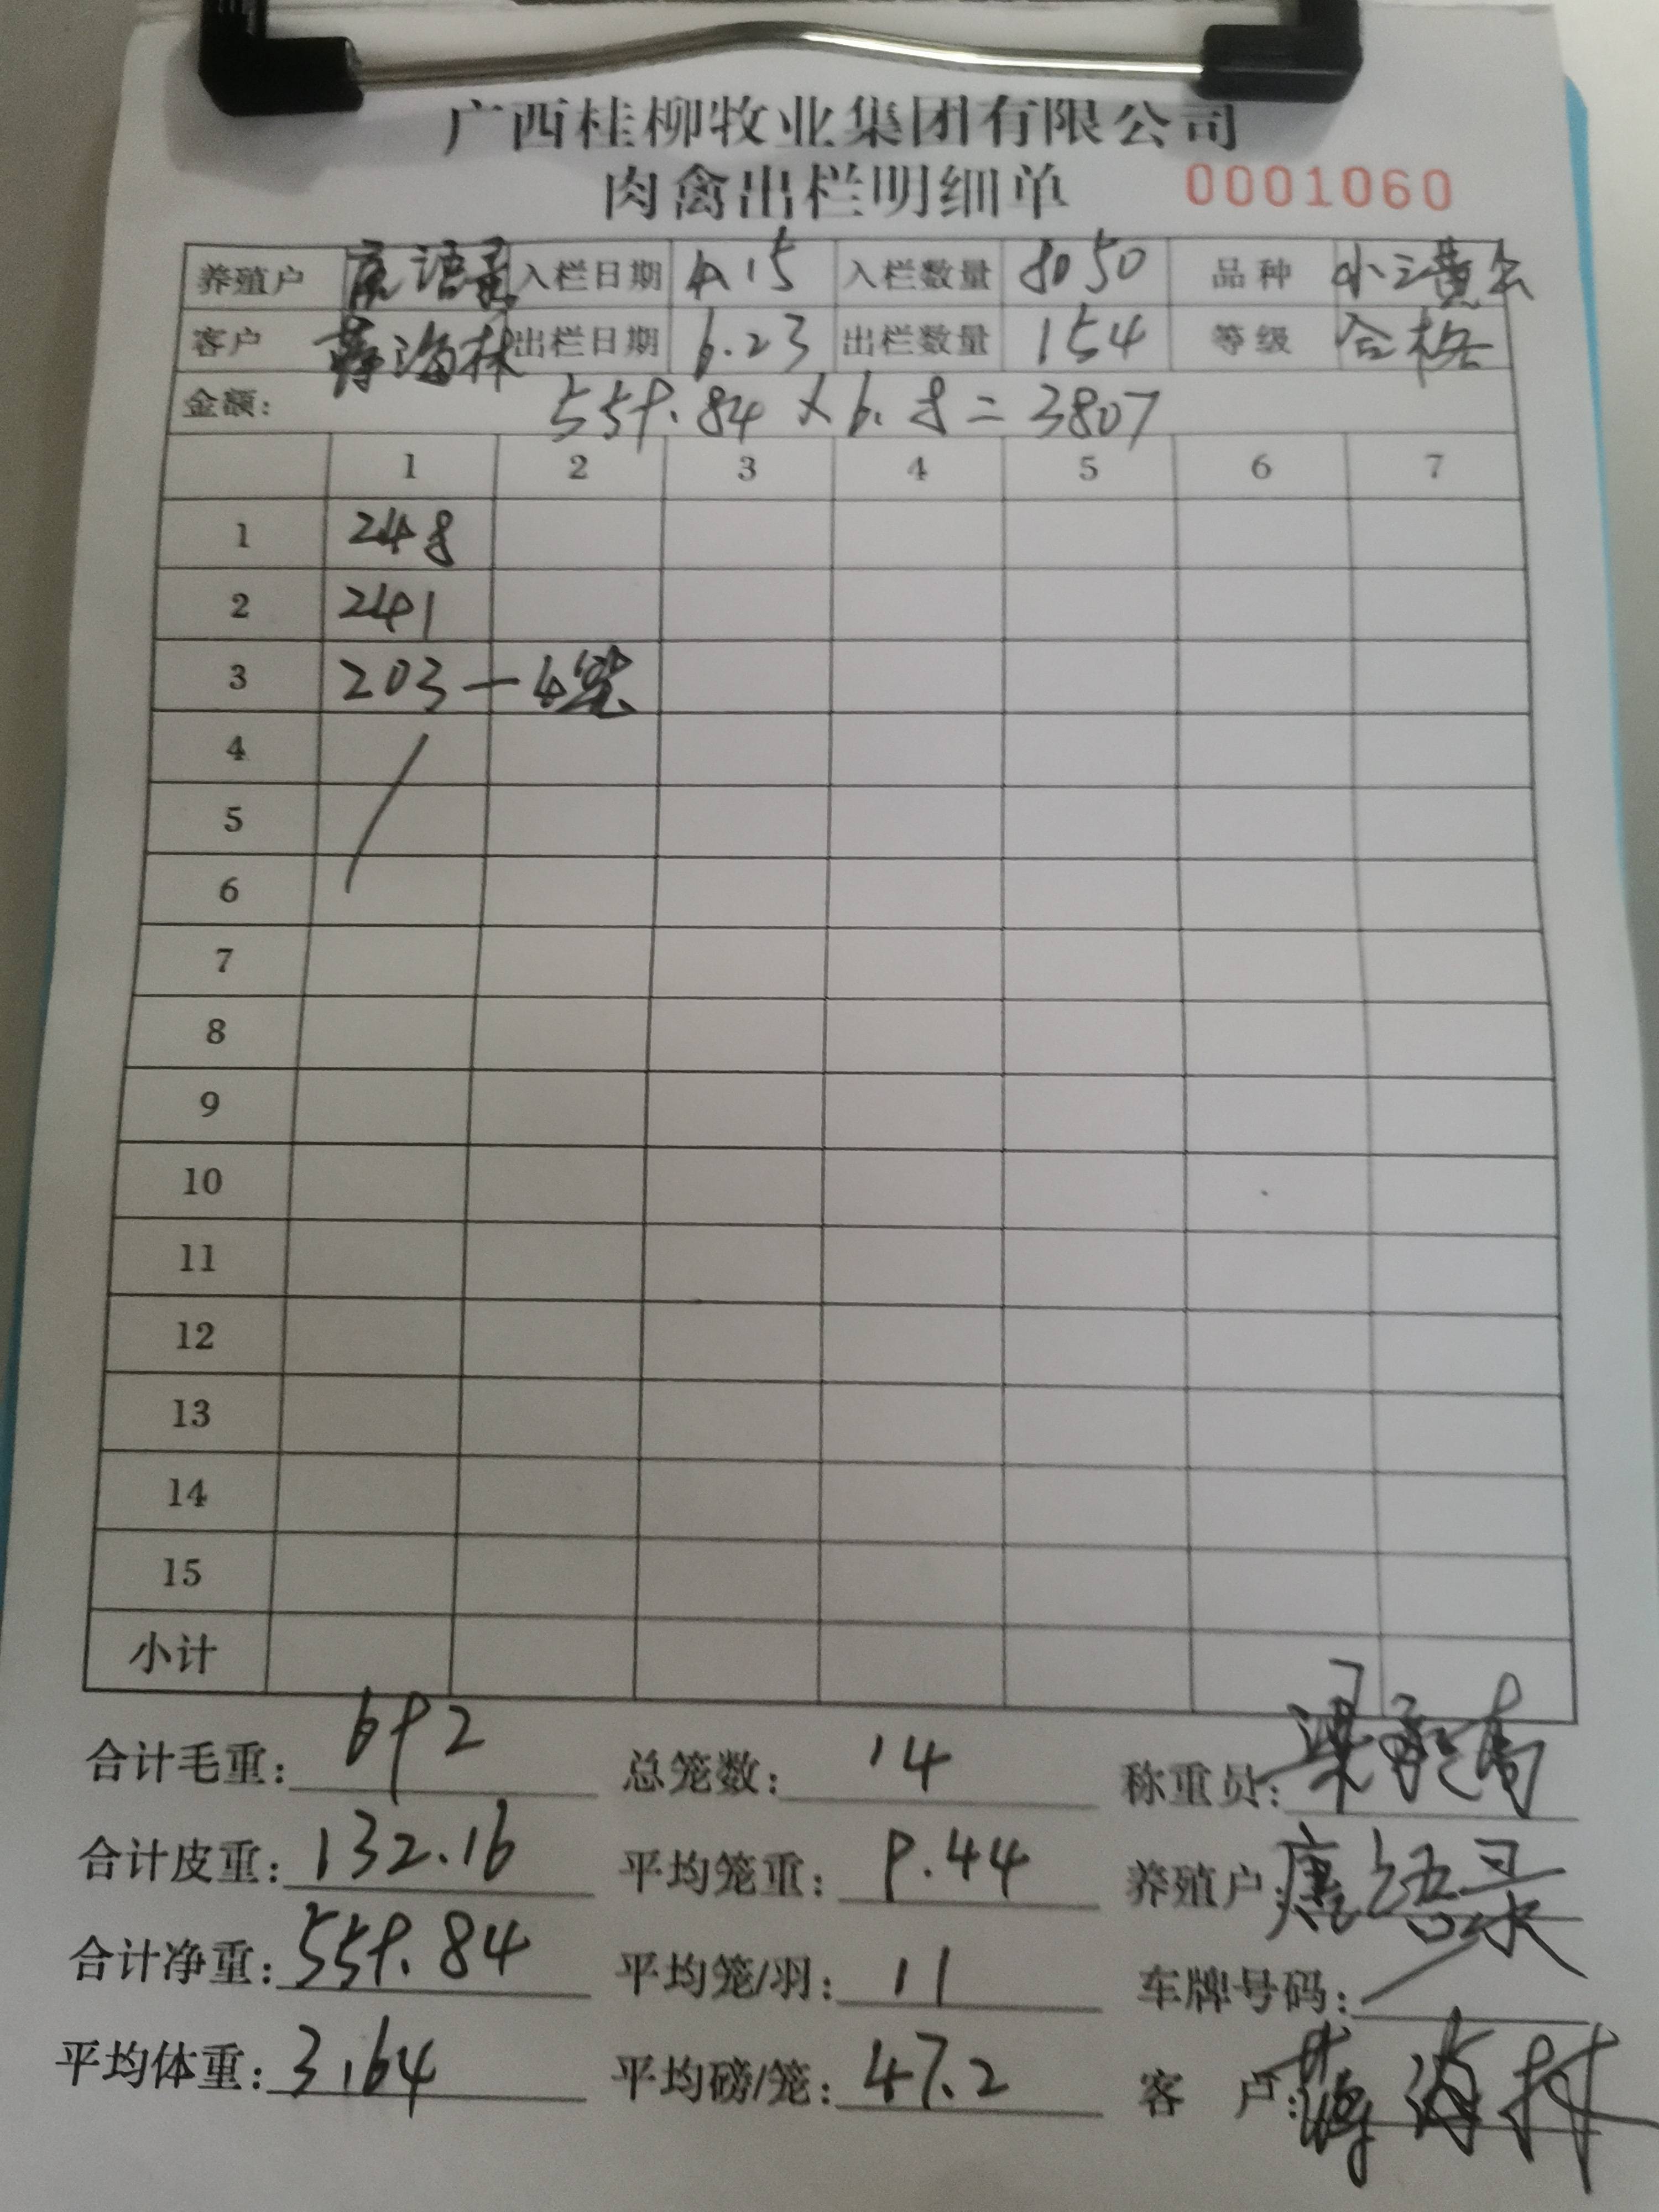 广西桂柳牧业集团有限公司
肉禽出栏明细单 0001060
养殖户 唐语 入栏日期 4.15 入栏数量 8050 品种 小三黄公
客户 蒋海林 出栏日期 6.23 出栏数量 154 等级 合格
金额: 559.84×6.8=3807
1 2 3 4 5 6 7
1 248
2 241
3 203—4笼
4
5
6
7
8
9
10
11
12
13
14
15
小计
合计毛重: 692 总笼数: 14 称重员: 梁
合计皮重: 132.16 平均笼重: 9.44 养殖户: 唐语
合计净重: 559.84 平均笼/羽: 11 车牌号码:
平均体重: 3.64 平均磅/笼: 47.2 客 户: 蒋海林